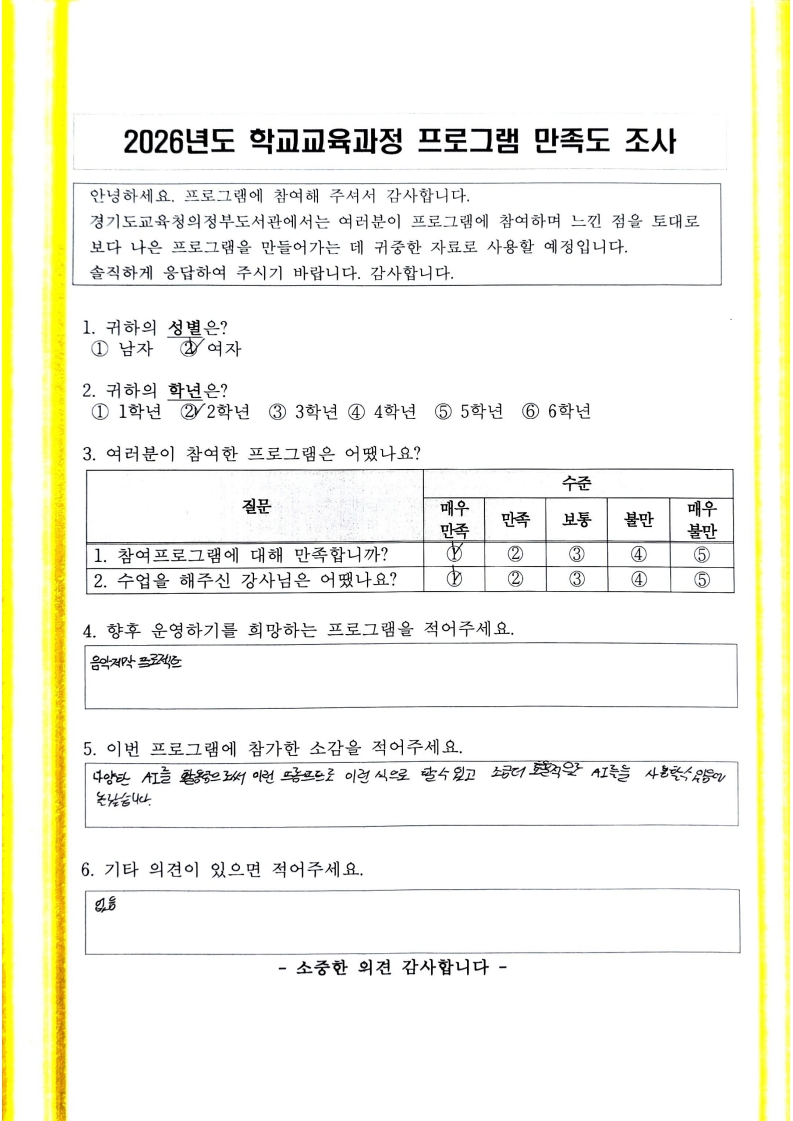 2026년도 학교교육과정 프로그램 만족도 조사
안녕하세요. 프로그램에 참여해 주셔서 감사합니다.
경기도교육청의정부도서관에서는 여러분이 프로그램에 참여하며 느낀 점을 토대로
보다 나은 프로그램을 만들어가는 데 귀중한 자료로 사용할 예정입니다.
솔직하게 응답하여 주시기 바랍니다. 감사합니다.
1. 귀하의 성별은?
① 남자 ② 여자
2. 귀하의 학년은?
① 1학년 ② 2학년 ③ 3학년 ④ 4학년 ⑤ 5학년 ⑥ 6학년
3. 여러분이 참여한 프로그램은 어땠나요?
질문 수준
매우 만족 만족 보통 불만 매우 불만
1. 참여프로그램에 대해 만족합니까? ① ② ③ ④ ⑤
2. 수업을 해주신 강사님은 어땠나요? ① ② ③ ④ ⑤
4. 향후 운영하기를 희망하는 프로그램을 적어주세요.
음악제작 프로젝트
5. 이번 프로그램에 참가한 소감을 적어주세요.
다양한 AI를 활용함으로써 이런 프롬프트로 이런 식으로 할수 있고 조금더 AI툴을 사용할수 있음에
놀랐습니다.
6. 기타 의견이 있으면 적어주세요.
없음
- 소중한 의견 감사합니다 -